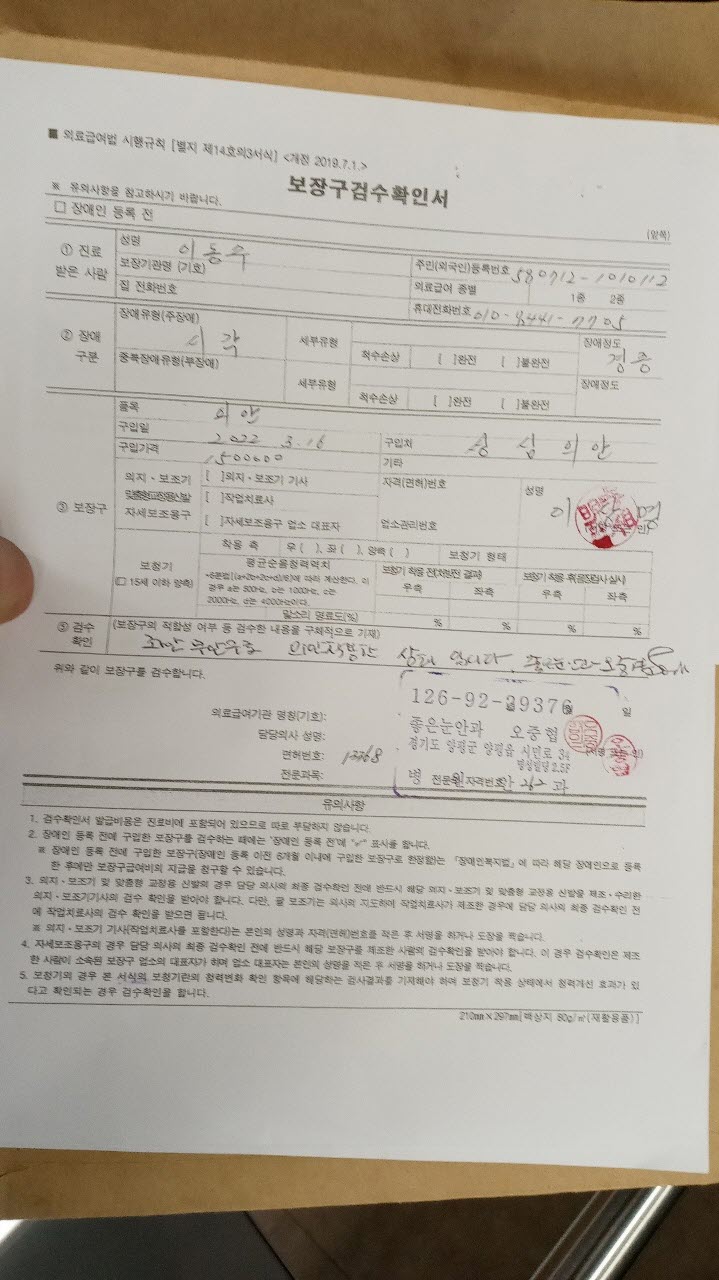 ■ 의료급여법 시행규칙 [별지 제14호의3서식] <개정 2019.7.1.>
보장구검수확인서
※ 유의사항을 참고하시기 바랍니다.
(앞쪽)
□ 장애인 등록 전
① 진료 받은 사람
성명 이동수
주민(외국인)등록번호 580712-1010112
보장기관명 (기호)
의료급여 종별 1종 2종
집 전화번호
휴대전화번호 010-9441-7705
② 장애 구분
장애유형(주장애) 시각
세부유형
척수손상 [ ]완전 [ ]불완전
장애정도 경증
중복장애유형(부장애)
세부유형
척수손상 [ ]완전 [ ]불완전
장애정도
③ 보장구
품목 의안
구입일 2022 3.16
구입처 성심의안
구입가격 1500600
기타
의지ㆍ보조기
맞춤형교정용신발
자세보조용구
[ ]의지ㆍ보조기 기사
[ ]작업치료사
[ ]자세보조용구 업소 대표자
자격(면허)번호
업소관리번호
성명
보청기
(□ 15세 이하 양측)
착용 측 우( ), 좌( ), 양쪽( )
보청기 형태
평균순음청력역치
*6분법[(a+2b+2c+d)/6]에 따라 계산한다. 이
경우 a는 500Hz, b는 1000Hz, c는
2000Hz, d는 4000Hz이다.
보청기 착용 전(처방전 결과)
우측 좌측
보청기 착용 후(음장검사 실시)
우측 좌측
말소리 명료도(%) % % % %
⑤ 검수 확인
(보장구의 적합성 여부 등 검수한 내용을 구체적으로 기재)
상태 입니다.
위와 같이 보장구를 검수합니다.
126-92-29376
일
의료급여기관 명칭(기호):
좋은눈안과 오중협
담당의사 성명:
경기도 양평군 양평읍 시민로 34
면허번호:
전문과목:
전문의자격번호
유의사항
1. 검수확인서 발급비용은 진료비에 포함되어 있으므로 따로 부담하지 않습니다.
2. 장애인 등록 전에 구입한 보장구를 검수하는 때에는 "장애인 등록 전"에 "✓" 표시를 합니다.
※ 장애인 등록 전에 구입한 보장구(장애인 등록 이전 6개월 이내에 구입한 보장구로 한정함)는 「장애인복지법」에 따라 해당 장애인으로 등록
한 후에만 보장구급여비의 지급을 청구할 수 있습니다.
3. 의지ㆍ보조기 및 맞춤형 교정용 신발의 경우 담당 의사의 최종 검수확인 전에 반드시 해당 의지ㆍ보조기 및 맞춤형 교정용 신발을 제조ㆍ수리한
의지ㆍ보조기기사의 검수 확인을 받아야 합니다. 다만, 팔 보조기는 의사의 지도하에 작업치료사가 제조한 경우에 담당 의사의 최종 검수확인 전
에 작업치료사의 검수 확인을 받으면 됩니다.
※ 의지ㆍ보조기 기사(작업치료사를 포함한다)는 본인의 성명과 자격(면허)번호를 적은 후 서명을 하거나 도장을 찍습니다.
4. 자세보조용구의 경우 담당 의사의 최종 검수확인 전에 반드시 해당 보장구를 제조한 사람의 검수확인을 받아야 합니다. 이 경우 검수확인은 제조
한 사람이 소속된 보장구 업소의 대표자가 하며 업소 대표자는 본인의 성명을 적은 후 서명을 하거나 도장을 찍습니다.
5. 보청기의 경우 본 서식의 보청기란의 청력변화 확인 항목에 해당하는 검사결과를 기재해야 하며 보청기 착용 상태에서 청력개선 효과가 있
다고 확인되는 경우 검수확인을 합니다.
210㎜×297㎜[백상지 80g/㎡(재활용품)]